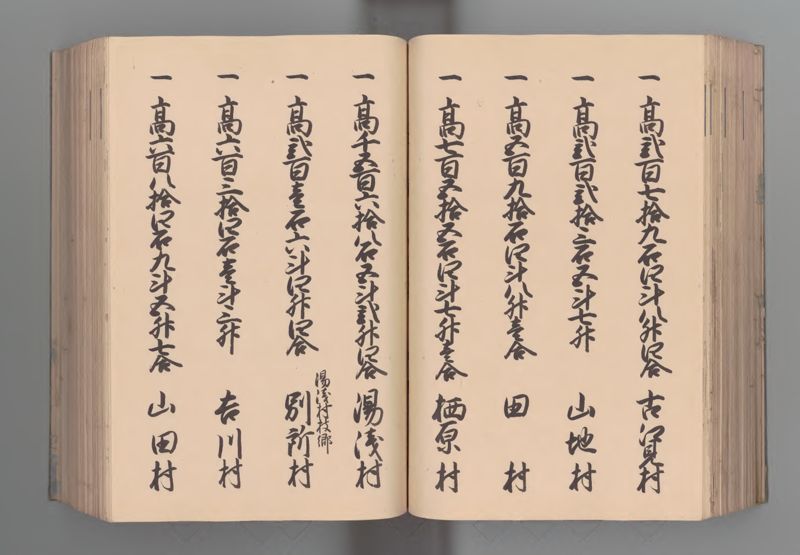 一 高弐百七拾九石四斗八升四合 古江見村
一 高弐百弐拾三石五斗七升 山地村
一 高五百九拾石四斗八升壱合 田村
一 高七百五拾五石四斗七升壱合 栖原村
一 高千五百六拾八石五斗弐升四合 湯浅村
湯浅村枝郷
一 高弐百壱石六斗四升四合 別所村
一 高六百三拾四石壱斗三升 吉川村
一 高六百八拾四石九斗五升七合 山田村